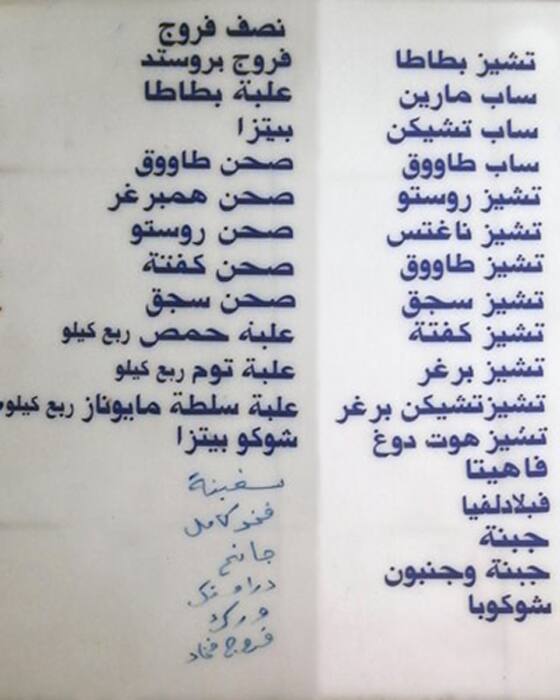 تشيز بطاطا
ساب مارين
ساب تشيكن
ساب طاووق
تشيز روستو
تشيز ناغتس
تشيز طاووق
تشيز سجق
تشيز كفتة
تشيز برغر
تشيزتشيكن برغر
تشيز هوت دوغ
فاهيتا
فيلادلفيا
جبنة
جبنة وجنبون
شوكوبا
نصف فروج
فروج بروستد
علبة بطاطا
بيتزا
صحن طاووق
صحن همبرغر
صحن روستو
صحن كفتة
صحن سجق
علبة حمص ربع كيلو
علبة توم ربع كيلو
علبة سلطة مايوناز ربع كيلو
شوكو بيتزا
سفينة
كامل
جانح
فروج